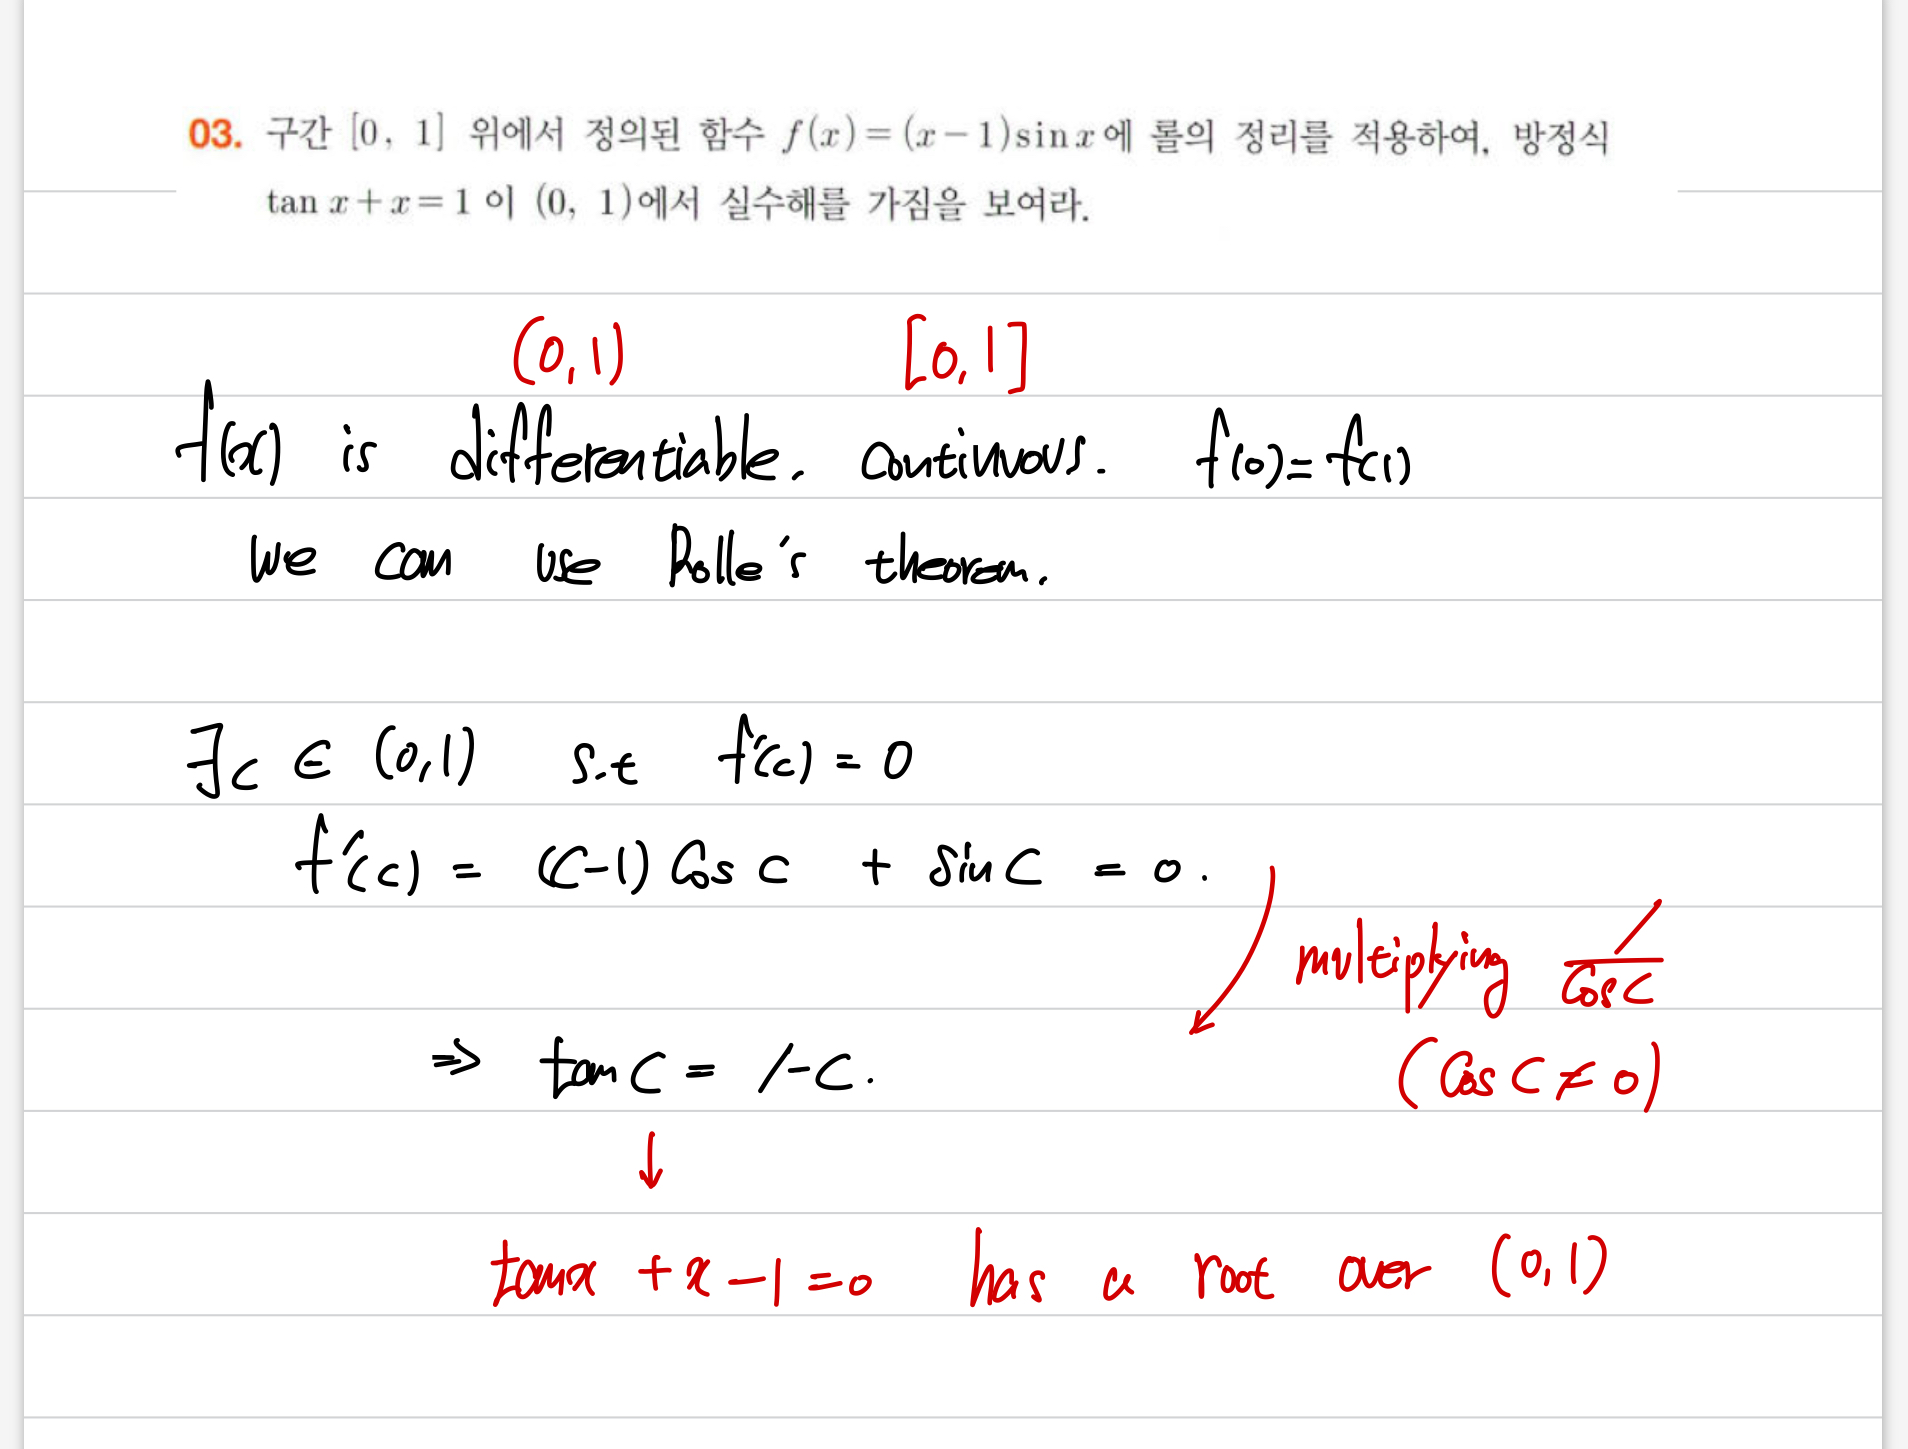 03. 구간 [0, 1] 위에서 정의된 함수 f(x)=(x-1)sinx에 롤의 정리를 적용하여, 방정식
tan x+x=1 이 (0, 1)에서 실수해를 가짐을 보여라.
(0,1) [0,1]
f(x) is differentiable. continuous. f(0)=f(1)
We can use Rolle's theorem.
∃c ∈ (0,1) s.t f'(c) = 0
f'(c) = (c-1) cos c + sin c = 0.
multiplying 1/cos c
⇒ tan c = 1-c. (cos c ≠ 0)
↓
tanx +x-1=0 has a root over (0,1)